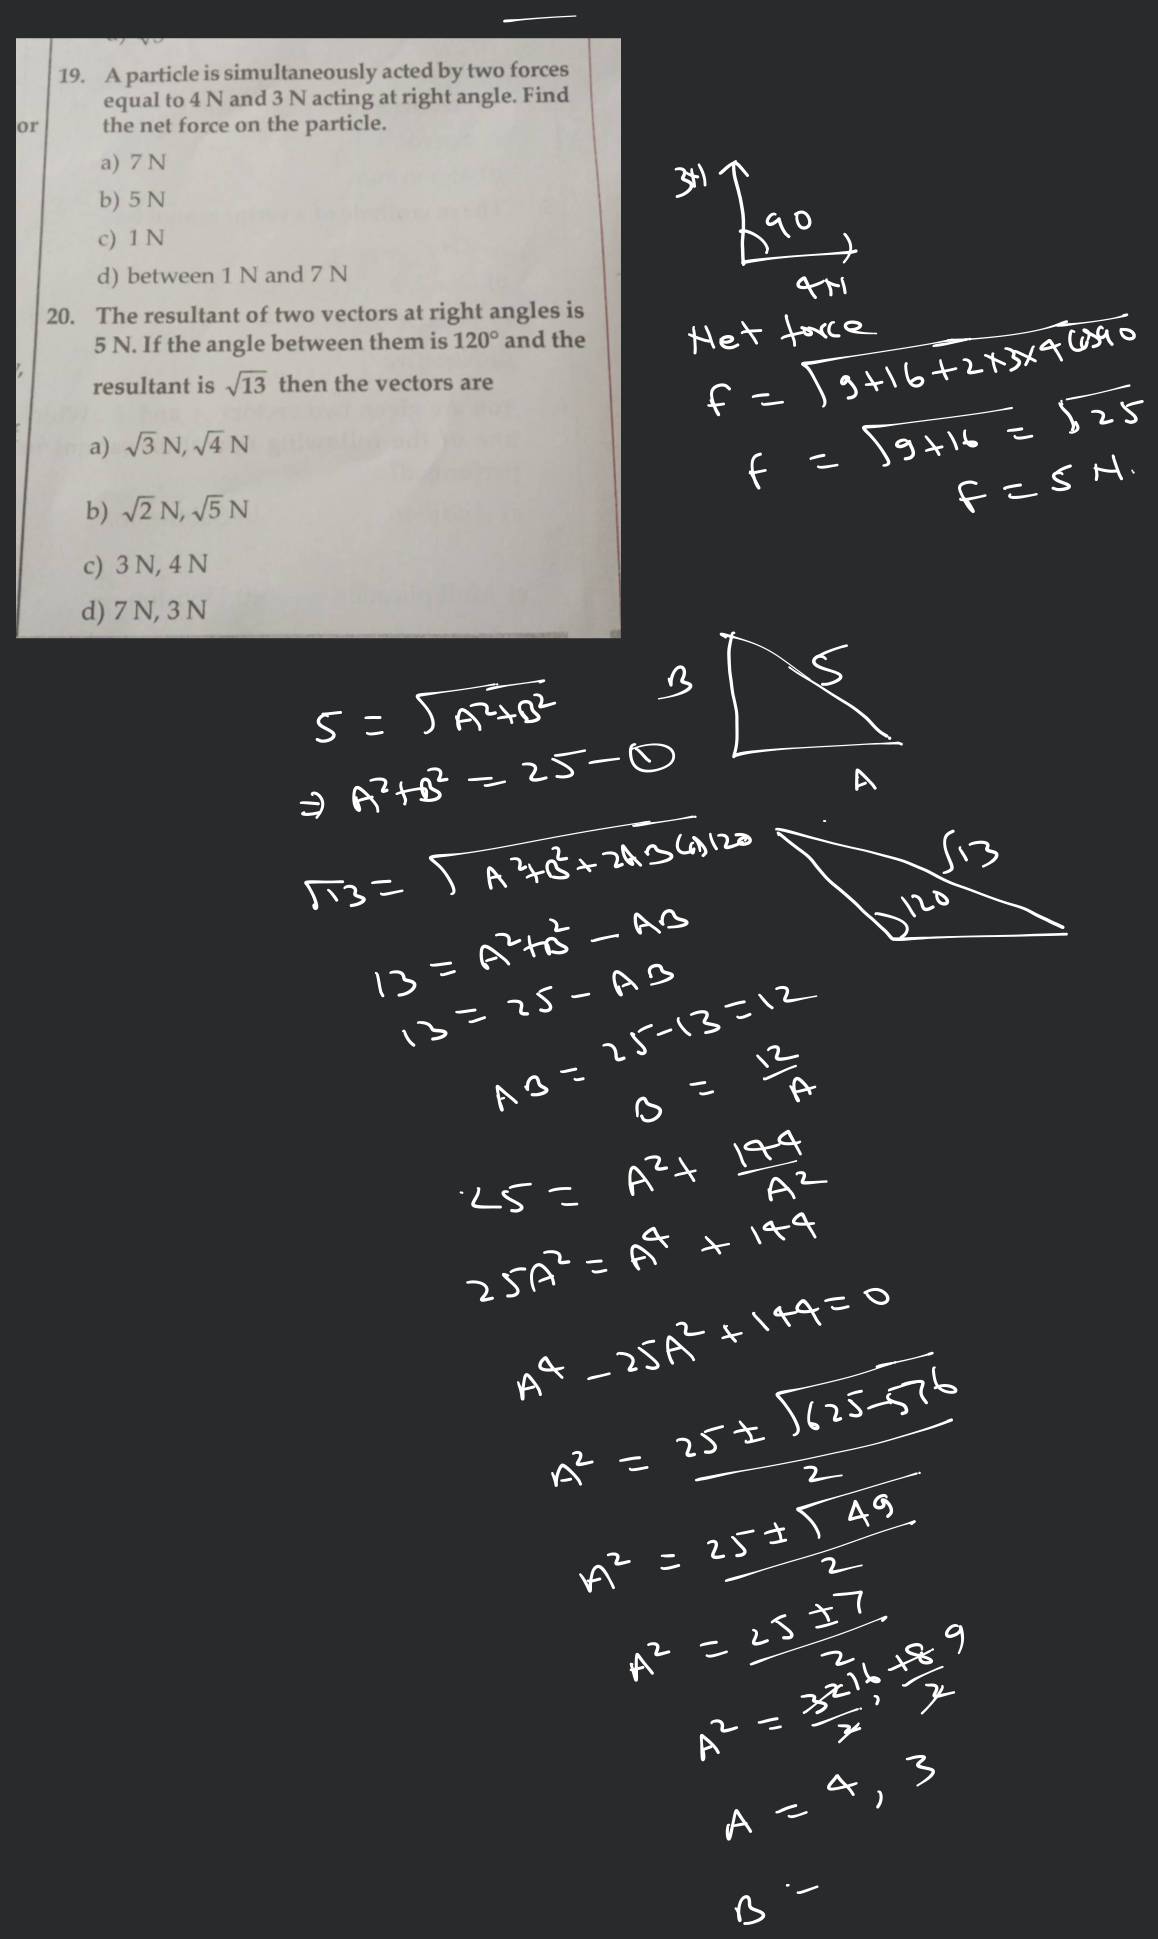 or
19. A particle is simultaneously acted by two forces
equal to 4 N and 3 N acting at right angle. Find
the net force on the particle.
a) 7 N
b) 5 N
c) 1 N
d) between 1 N and 7 N
20. The resultant of two vectors at right angles is
5 N. If the angle between them is 120° and the
resultant is √13 then the vectors are
a) √3 N, √4 N
b) √2 N, √5 N
c) 3 N, 4 N
d) 7 N, 3 N
3N
90
4N
Net force
F = √9+16+2×3×4 Cos90
F = √9+16 = √25
F = 5 N.
5 = √A²+B²
⇒ A²+B² = 25 — ①
B
5
A
√13 = √A²+B²+2AB Cos120
√13
120
13 = A²+B² – AB
13 = 25 – AB
AB = 25–13 = 12
B = 12/A
25 = A² + 144/A²
25A² = A⁴ + 144
A⁴ – 25A² + 144 = 0
A² = 25 ± √625–576 / 2
A² = 25 ± √49 / 2
A² = 25 ± 7 / 2
A² = 32/2 16, 18/2 9
A = 4, 3
B =